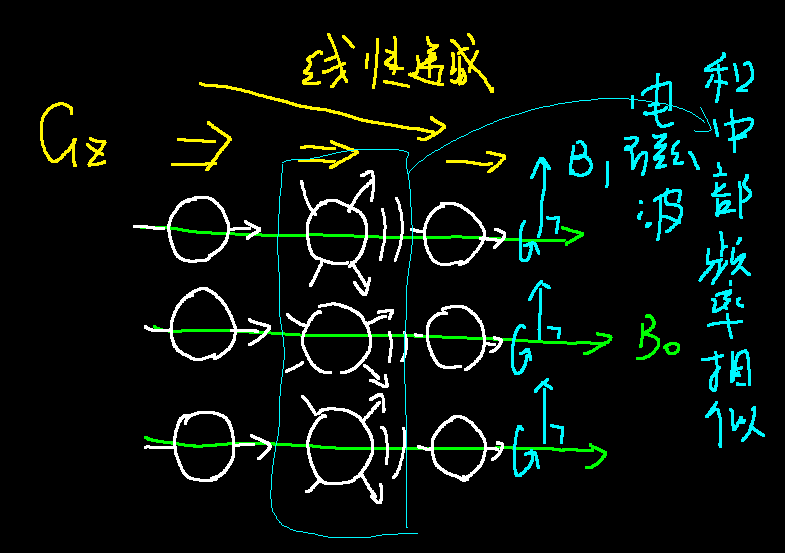 线性递减
Gz
B1
电磁波
和中部频率相似
B0